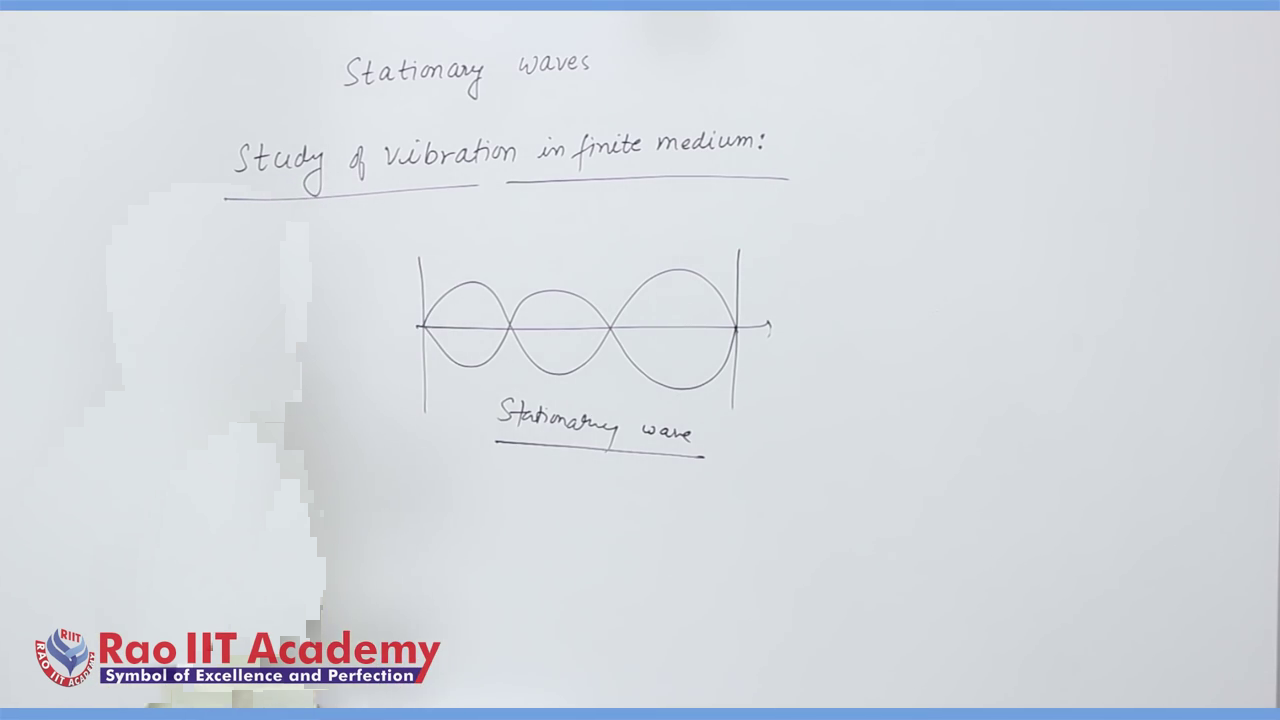 Stationary waves
Study of vibration in finite medium:
Stationary wave
RIIT
RAO IIT ACADEMY
Rao IIT Academy
Symbol of Excellence and Perfection